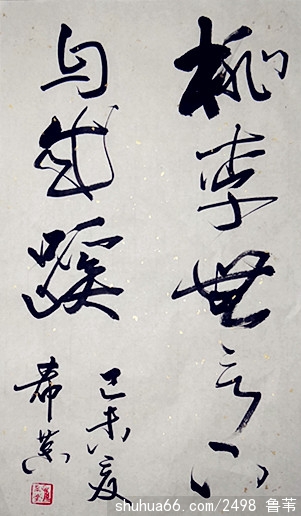 桃李無言下
自成蹊
己未夏
希
shuhua66.com/2498 鲁苇